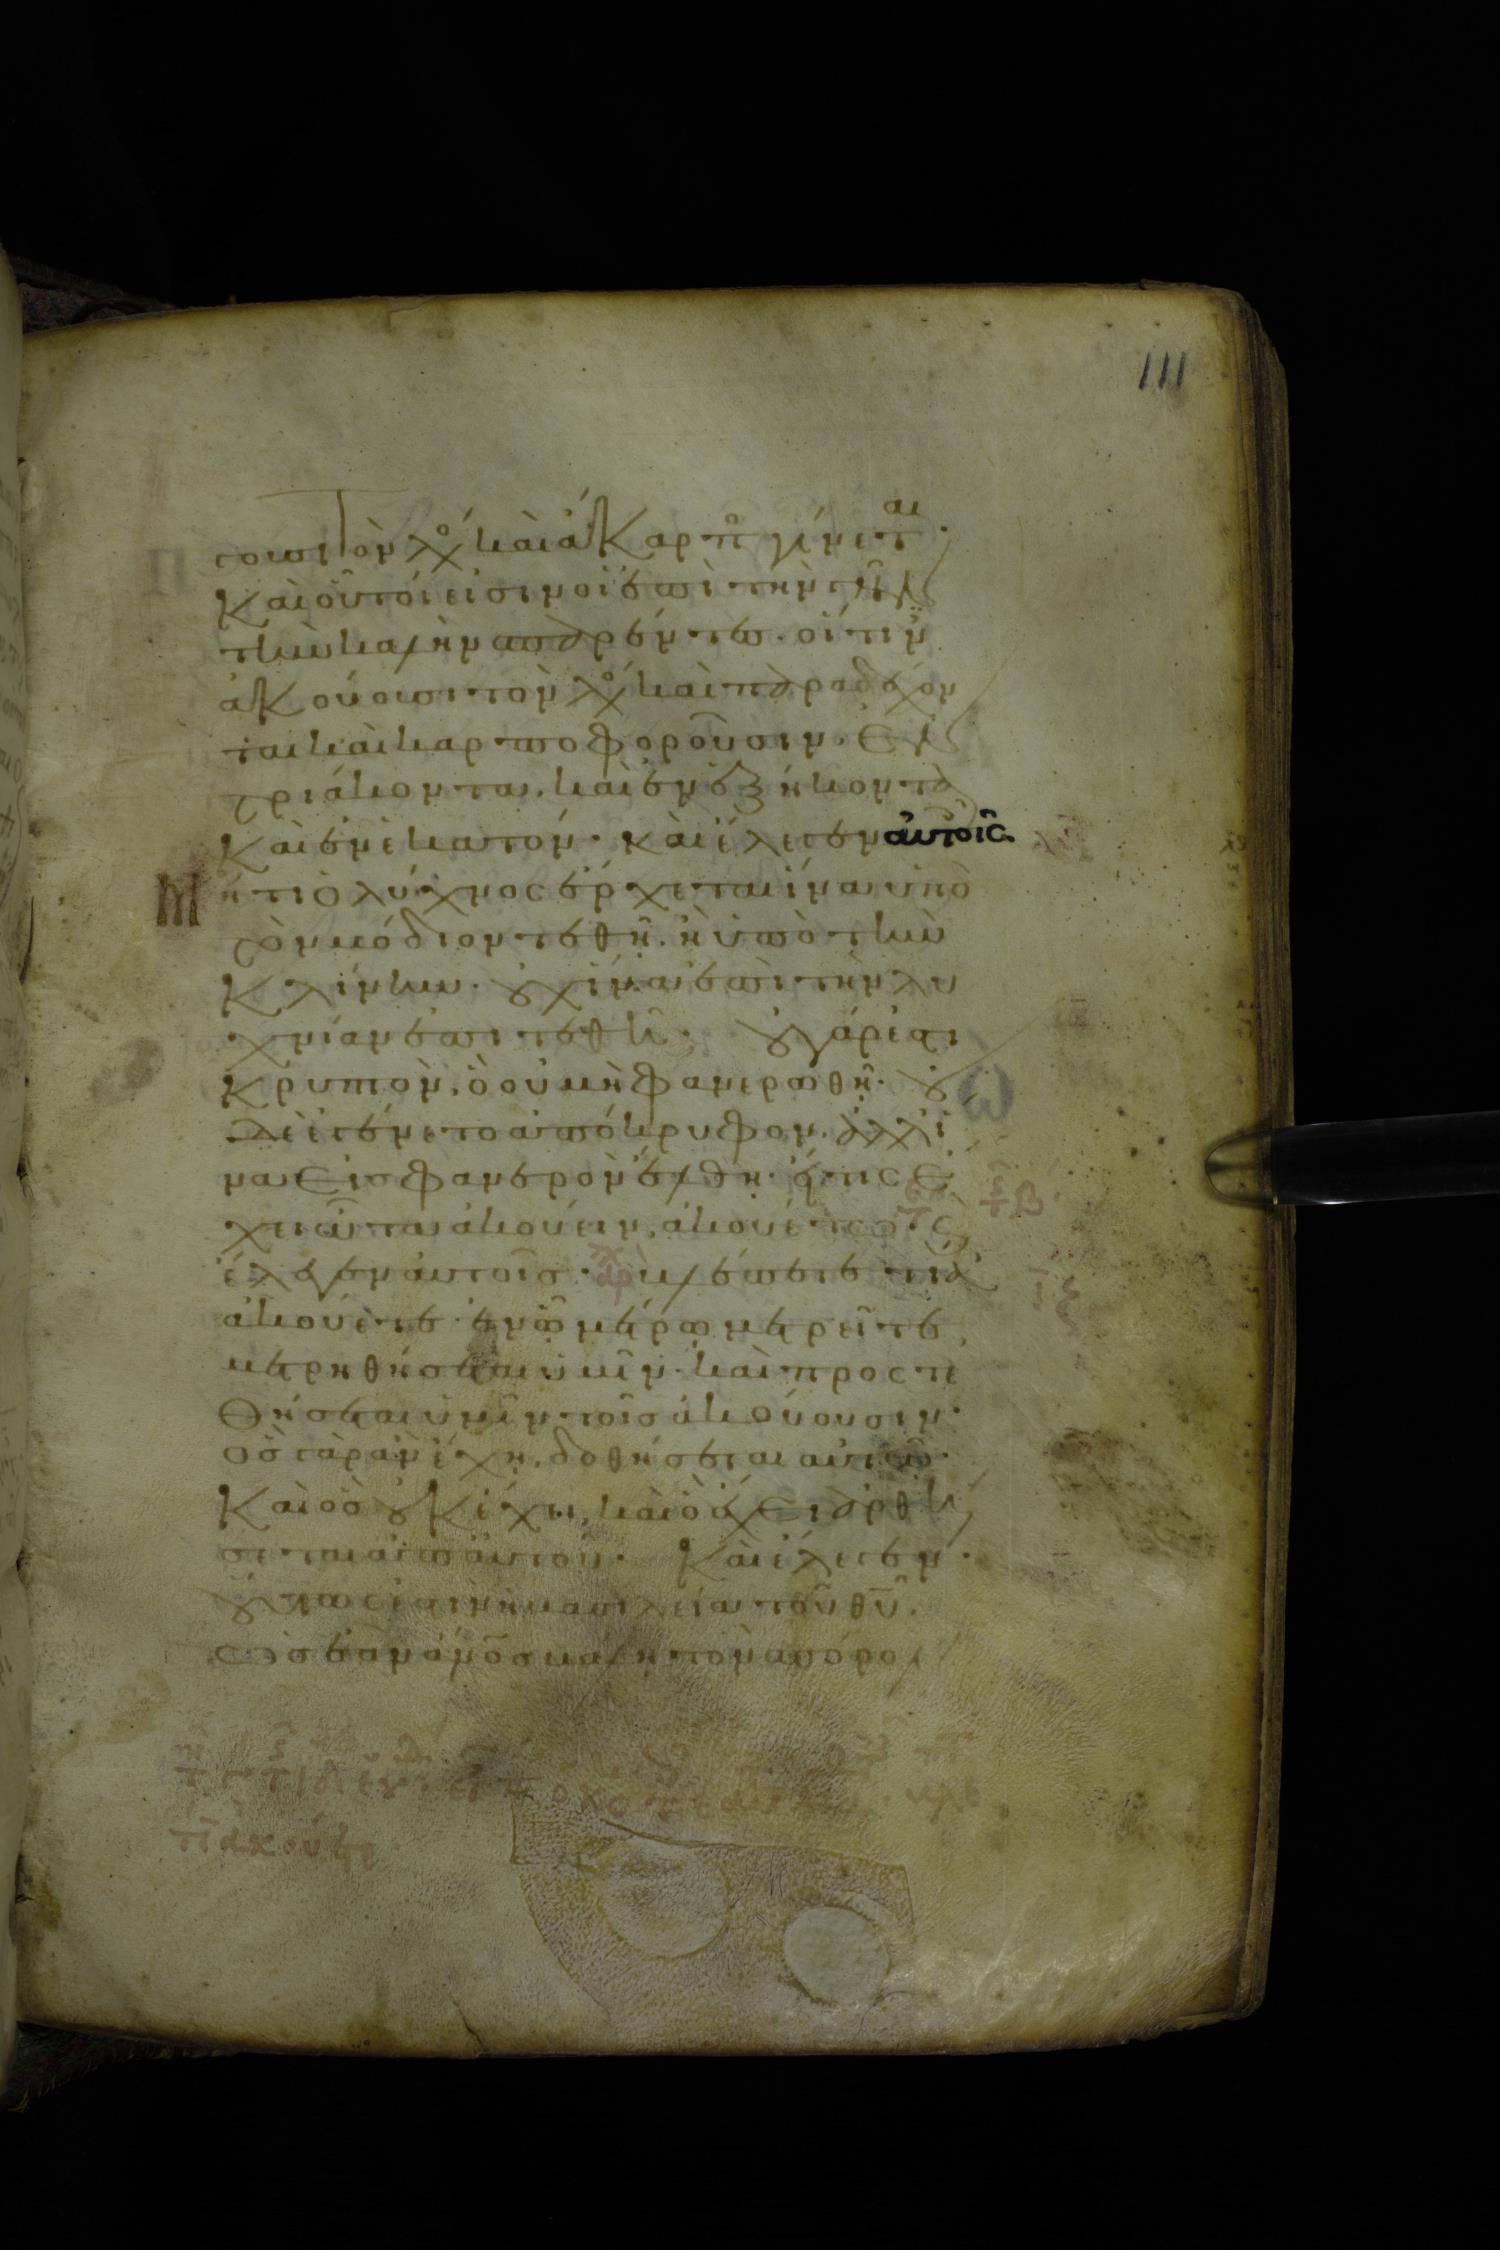 111
σουσι τὸν λόγ καὶ ἄκαρπο γίνεται·
καὶ οὗτοί εἰσιν οἱ ἐπὶ τὴν γῆν
τὴν καλὴν σπαρέντες. οἵτιν
ἀκούουσι τὸν λόγ καὶ παραδέχον
ται καὶ καρποφοροῦσιν. ἓν
τριάκοντα. καὶ ἓν ἑξήκοντα
καὶ ἓν ἑκατόν. καὶ ἔλεγεν αὐτοῖς
Μήτι ὁ λύχνος ἔρχεται ἵνα ὑπὸ
τὸν μόδιον τεθῇ. ἢ ὑπὸ τὴν
κλίνην. οὐχ ἵνα ἐπὶ τὴν λυ
χνίαν ἐπιτεθῇ. οὐ γάρ ἐστι
κρυπτὸν, ὃ οὐ μὴ φανερωθῇ. οὐ
δὲ ἐγένετο ἀπόκρυφον. ἀλλ' ἵ
να εἰς φανερὸν ἔλθη. εἴ τις ἔ
χει ὦτα ἀκούειν, ἀκουέτω. καὶ
ἔλεγεν αὐτοῖς. βλέπετε τί
ἀκούετε. ἐν ᾧ μέτρω μετρεῖτε
μετρηθήσεται ὑμῖν. καὶ προστε
θήσεται ὑμῖν τοῖς ἀκούουσιν.
ὃς γὰρ ἂν ἔχη. δοθήσεται αὐτῶ.
καὶ ὃς οὐκ ἔχει, καὶ ὃ ἔχει ἀρθή
σεται ἀπ αὐτοῦ. καὶ ἔλεγεν.
οὕτως ἐστὶν ἡ βασιλεία τοῦ θυ.
ὡς ἐὰν ἄνος βάλη τὸν σπόρον